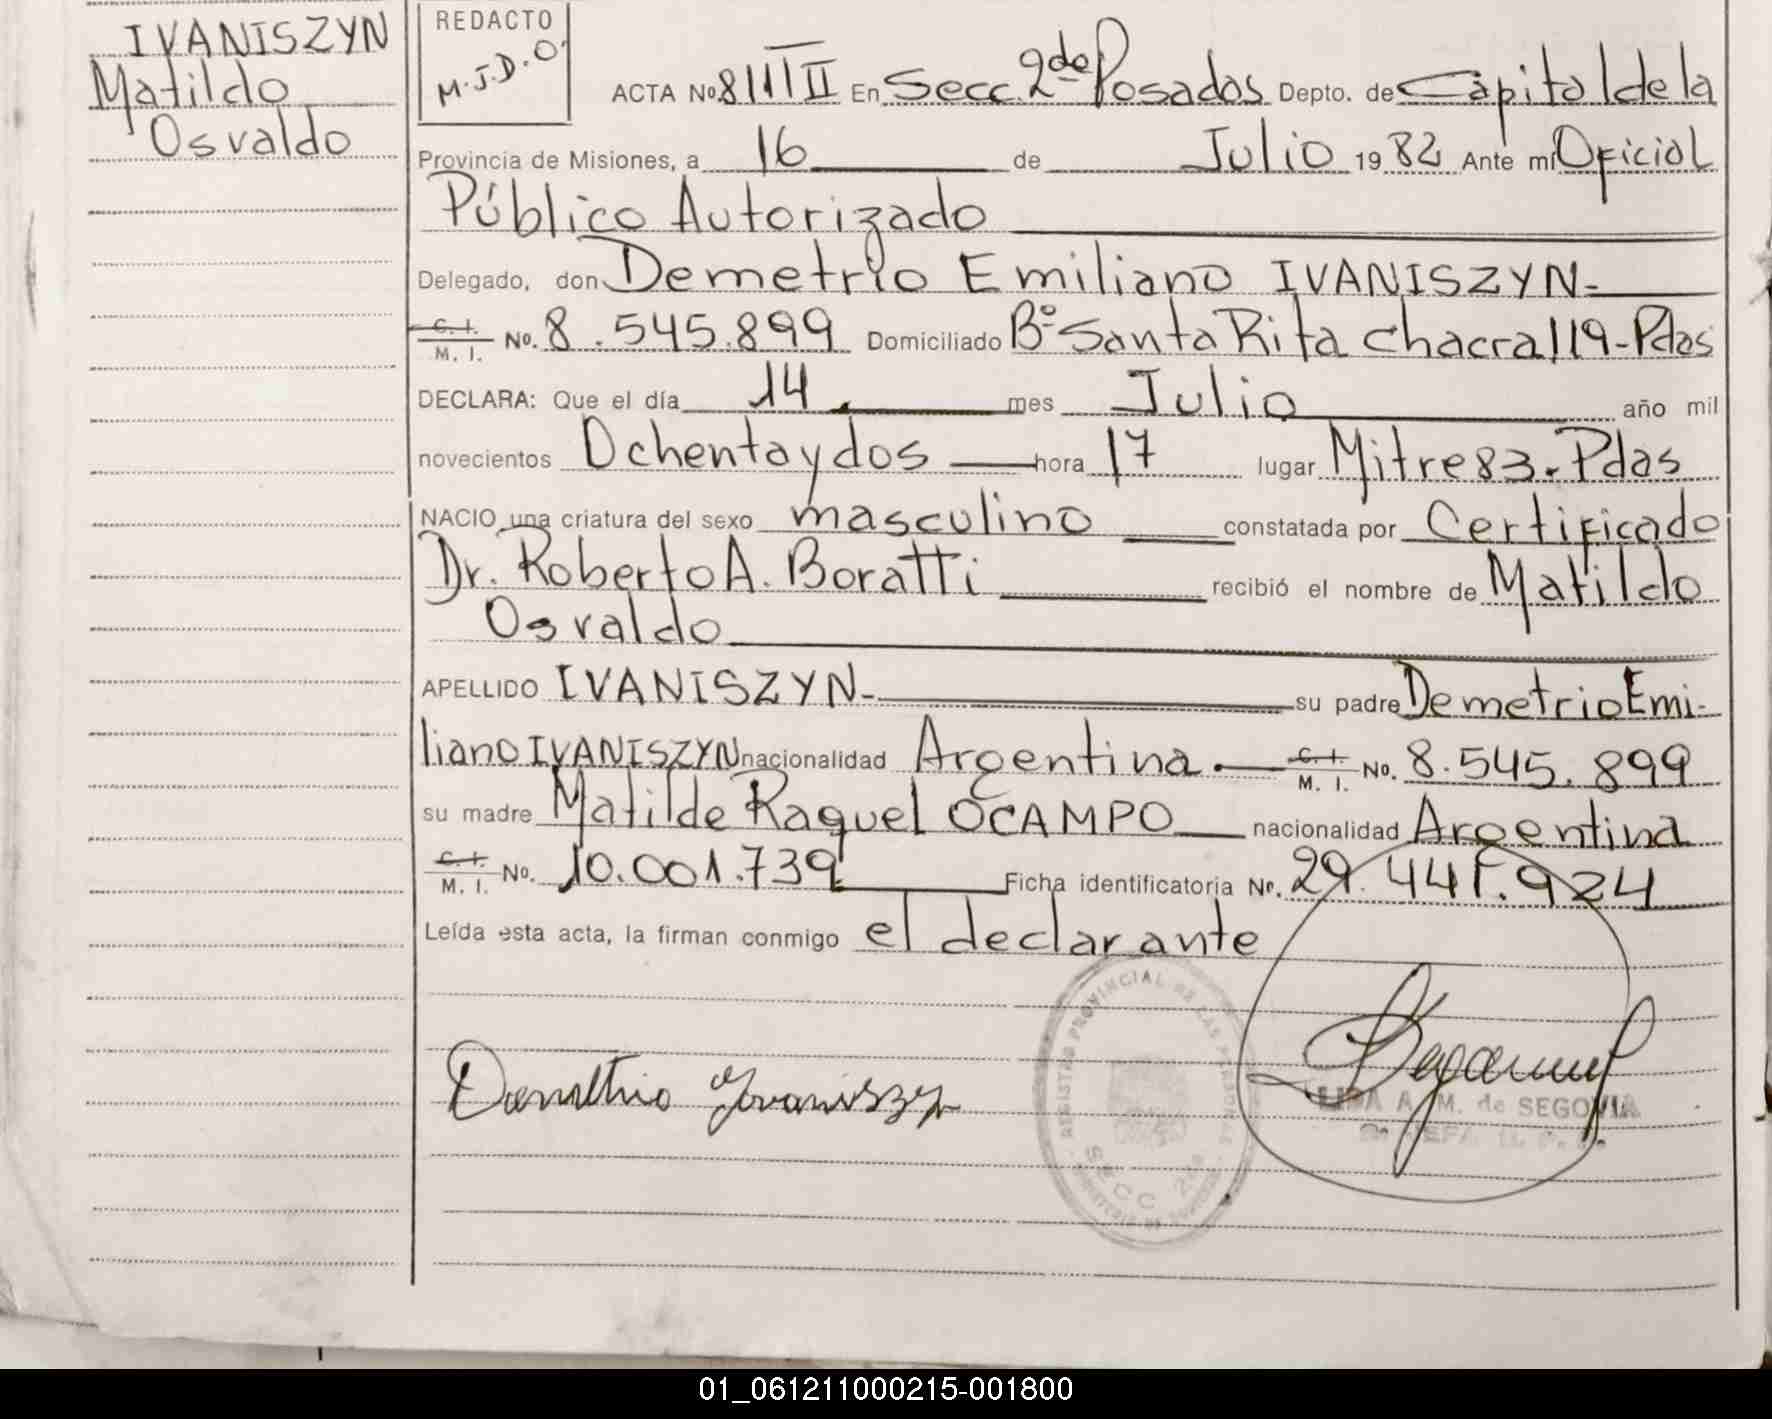 IVANISZYN
Matildo
Osvaldo
REDACTO
M.J.D.O.
ACTA No. 811 III En Secc. 2da Posadas Depto. de Capital de la
Provincia de Misiones, a 16 de Julio 19 82 Ante mí Oficial
Público Autorizado
Delegado, don Demetrio Emiliano IVANISZYN-
C. I. M. I. No. 8.545.899 Domiciliado Bº Santa Rita Chacra 119-Pdas
DECLARA: Que el día 14 mes Julio año mil
novecientos Ochenta y dos hora 17 lugar Mitre 83. Pdas
NACIO una criatura del sexo masculino constatada por Certificado
Dr. Roberto A. Boratti recibió el nombre de Matildo
Osvaldo
APELLIDO IVANISZYN- su padre Demetrio Emi-
liano IVANISZYN nacionalidad Argentina C. I. M. I. No. 8.545.899
su madre Matilde Raquel OCAMPO nacionalidad Argentina
C. I. M. I. No. 10.001.739 Ficha identificatoria No. 29.441.924
Leída esta acta, la firman conmigo el declarante
Demetrio Ivaniszyn
REGISTRO PROVINCIAL DE LAS PERSONAS
SECC 2da
A. M. de SEGOVIA
01_061211000215-001800